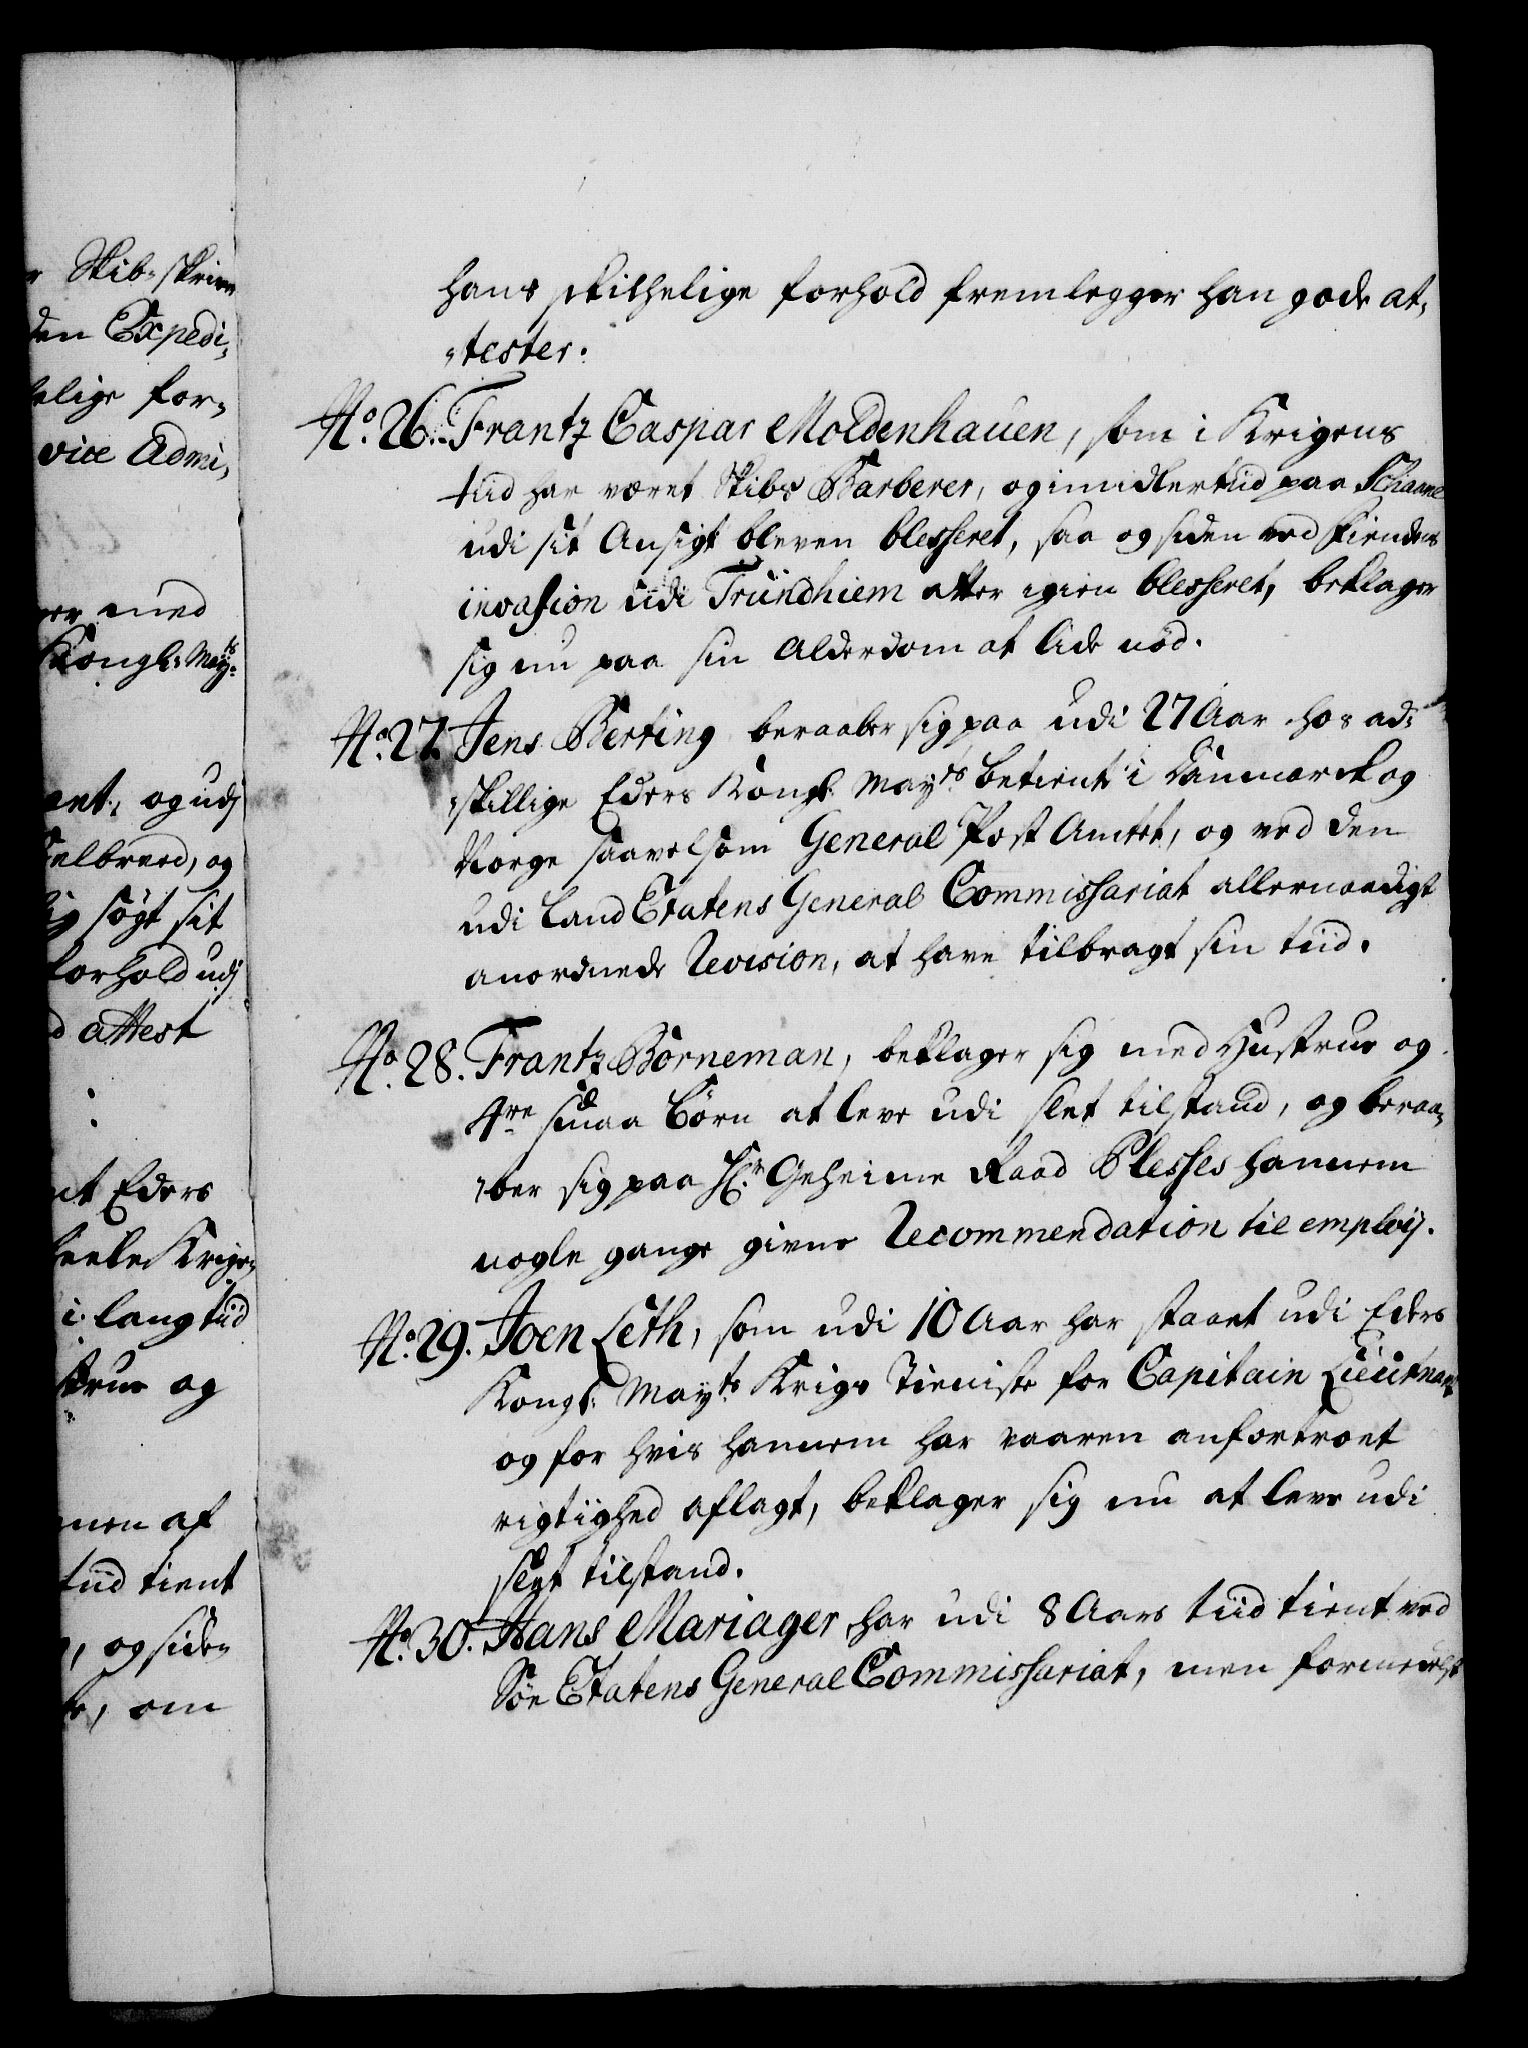 r Skib-skriver
den Expedi,
elige for,
vice Admi,
er med
Kongl: Mayts
ent, og udj
elbreed, og
ig søgt sit
forhold udj
d attest
nt Eders
heele Krigen
i lang tiid
strue og
nen af
tiid tient
, og siden
, om
hans skichelige forhold fremlegger han gode at,
"tester.
No. 26. Frantz Caspar Moldenhauen, som i Krigens
tiid har været Skibs Barberer, og imidlertiid paa Schaane
udi sit Ansigt bleven blesseret, saa og siden ved Fiendens
invasion udi Trundhiem atter igien blesseret, beklager
sig nu paa sin Alderdom at lide nød.
No. 27. Jens Berting beraaber sig paa udi 27 Aar hos ad,
"skillige Eders Kongl. Mayts betiente i Danmarck og
Norge saavelsom General Post Amtet, og ved den
udi Land Etatens General Commissariat allernaadigst
anordnede Revision, at have tilbragt sin tiid.
No. 28. Frantz Borneman, beklager sig med Hustrue og
4re smaa Børn at leve udi slet tilstand, og beraa,
"ber sig paa Hr. Geheime Raad Plesses hannem
nogle gange givne Recommendation til employ.
No. 29. Joen Leth, som udi 10 Aar har staaet udi Eders
Kongl. Mayts Krigs Tieniste for Capitain Lieutnant
og for hvis hannem har vaaren anfortroet
rigtighed aflagt, beklager sig nu at leve udi
slet tilstand.
No. 30. Hans Mariager har udi 8 Aars tiid tient ved
Søe Etatens General Commissariat, men formedelst